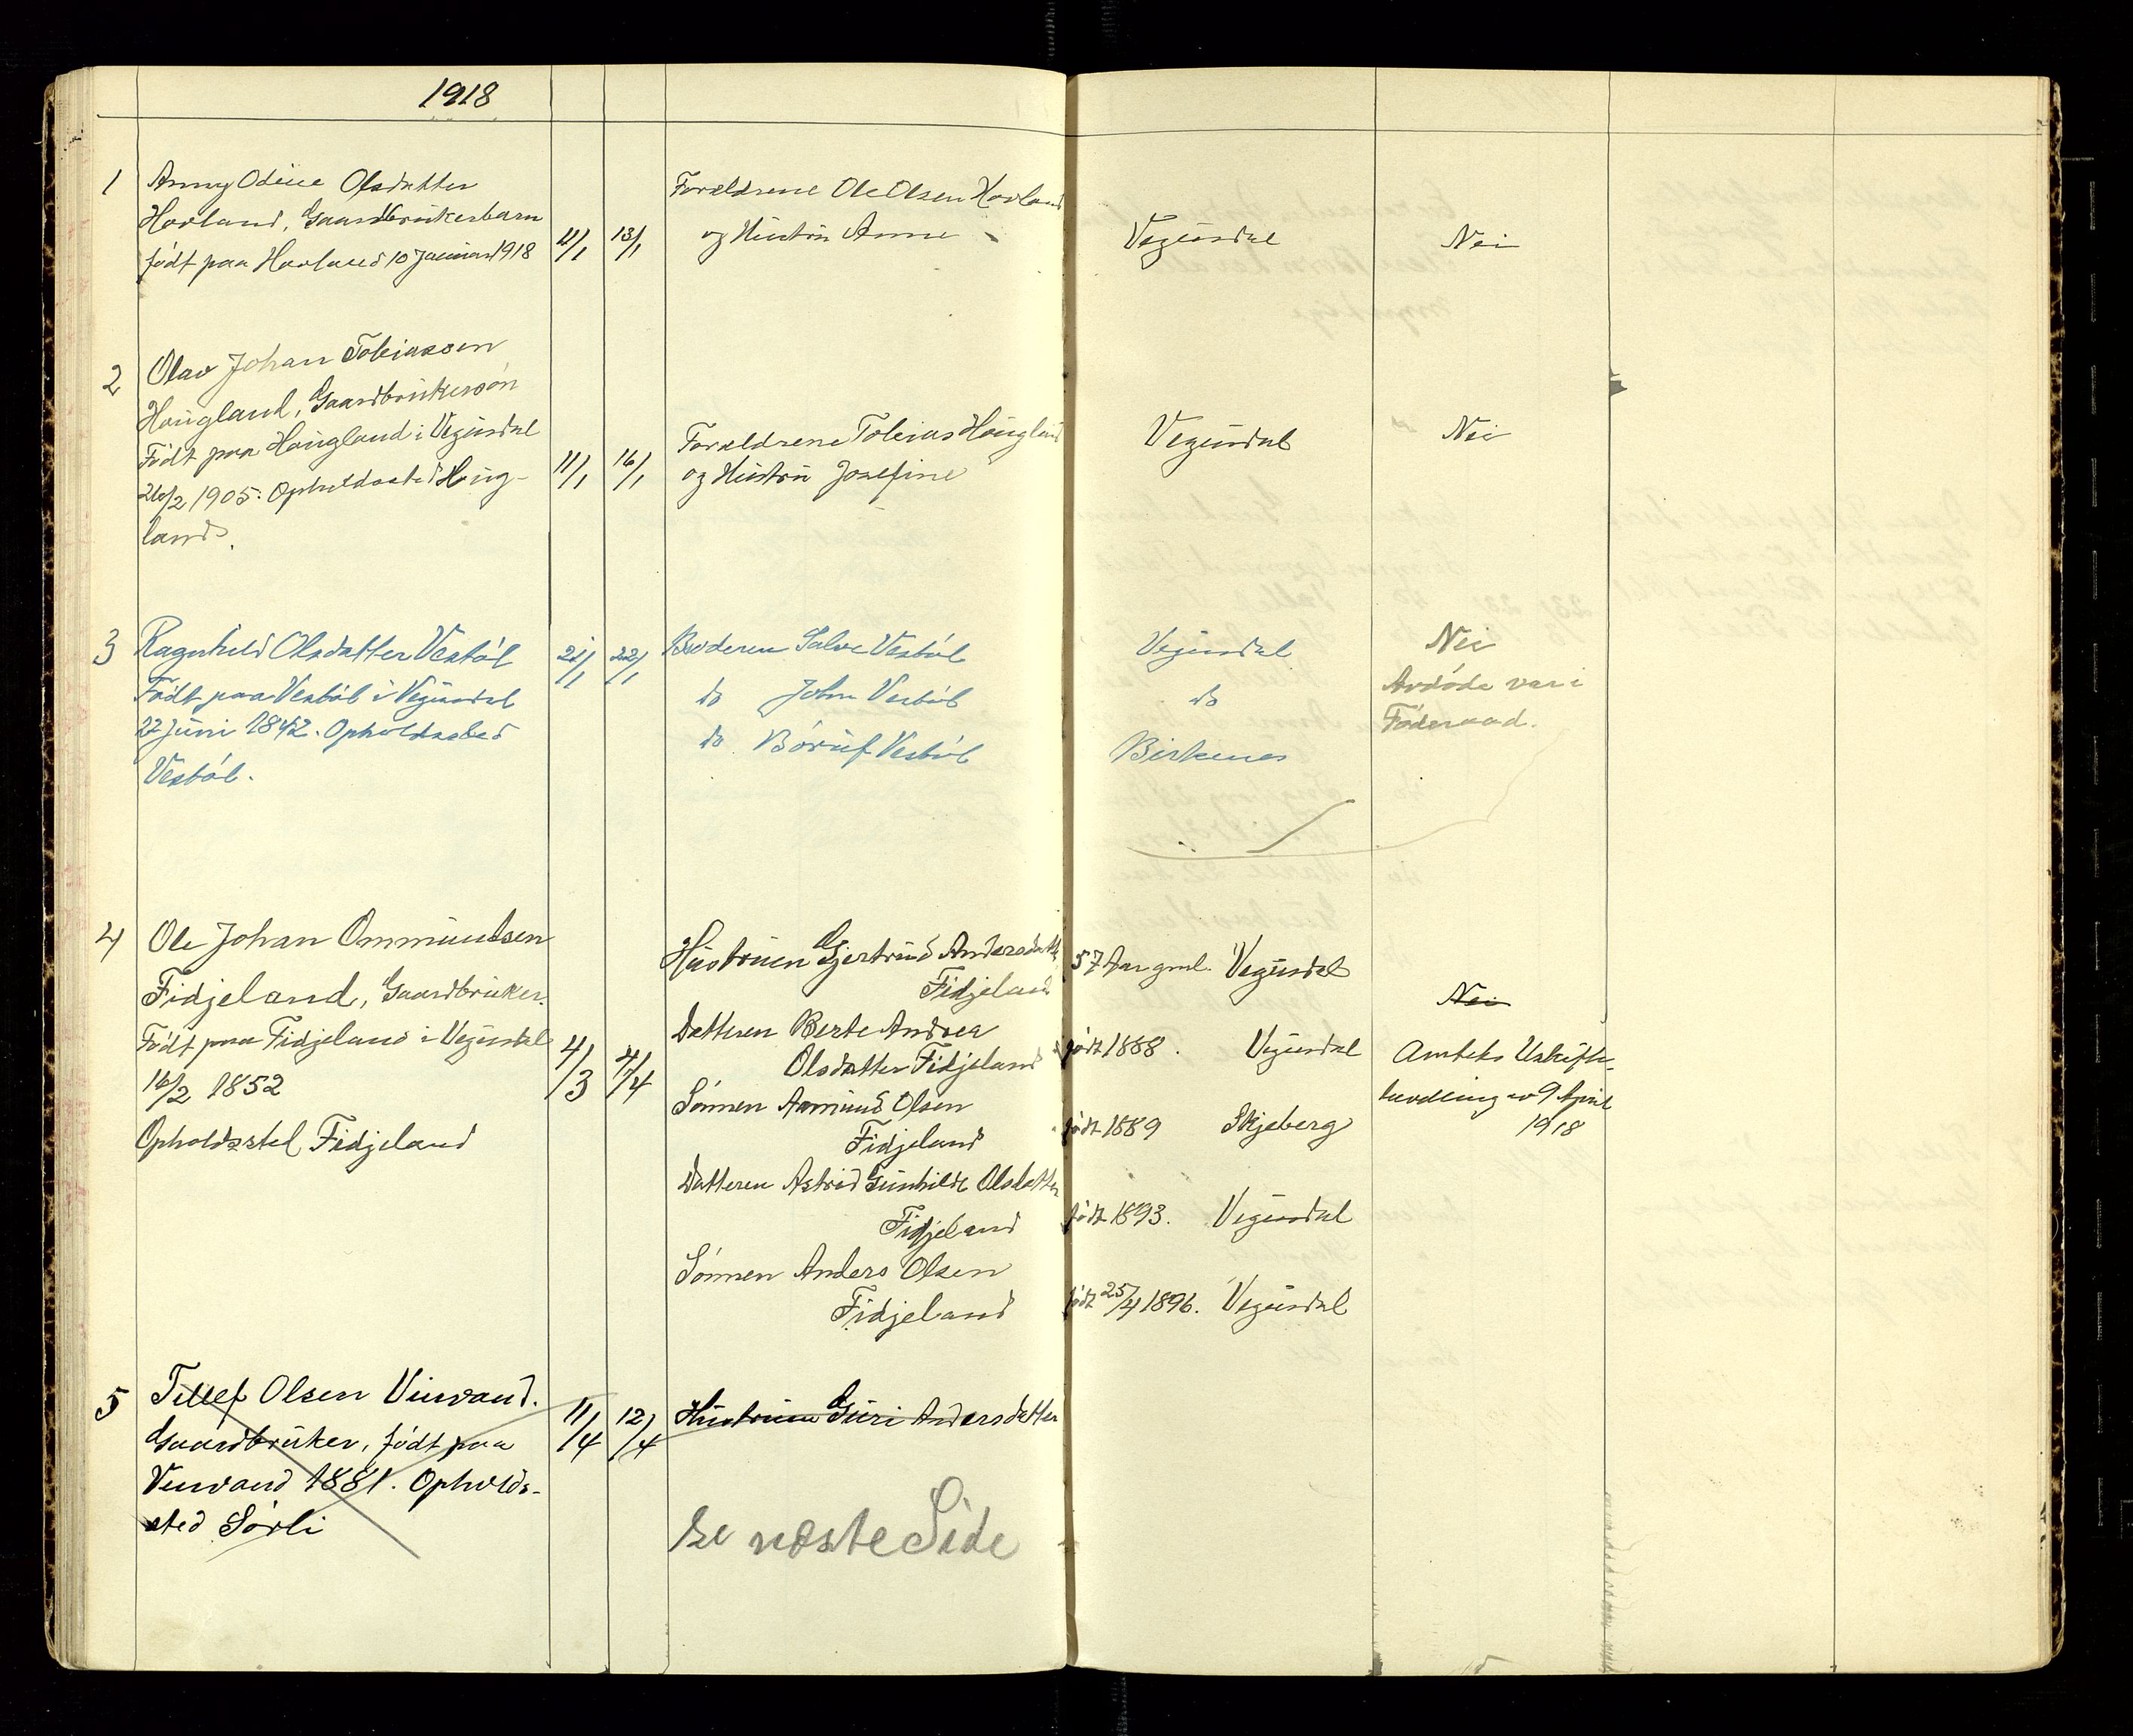 1918
1 Anny Odine Olsdatter
Hovland, Gaardbrukerbarn
födt paa Hovland 10 Januar 1918
11/1 13/1
Forældrene Ole Olsen Hovland
og Hustru Anne
Vegusdal
Nei
2 Olav Johan Tobiassen
Haugland, Gaardbrukersön
Födt paa Haugland i Vegusdal
26/2 1905. Opholdssted Haug-
land.
11/1 16/1
Forældrene Tobias Haugland
og Hustru Josefine
Vegusdal
Nei
3 Ragnhild Olsdatter Vestöl
Födt paa Vestöl i Vegusdal
22 Juni 1842. Opholdssted
Vestöl.
21/1 22/1
Broderen Salve Vestöl
do John Vestöl
do. Böruf Vestöl
Vegusdal
do
Birkenes
Nei
Avdöde var i
Föderaad.
4 Ole Johan Ommundsen
Fidjeland, Gaardbruker.
Födt paa Fidjeland i Vegusdal
16/2 1852
Opholdsstel Fidjeland
4/3 4/4
Hustruen Gjertrud Andersdatter 57 Aar gml. Vegusdal
Fidjeland
Datteren Berte Andrea
Olsdatter Fidjeland födt 1888. Vegusdal
Sönnen Aamund Olsen
Fidjeland födt 1889 Skjeberg
Datteren Astrid Gunhilde Olsdatter
Fidjeland födt 1893. Vegusdal
Sönnen Anders Olsen
Fidjeland födt 25/4 1896. Vegusdal
Nei
Amtets Uskifte-
bevilling av 9 April
1918
5 Tellef Olsen Vinvand.
Gaardbruker, födt paa
Vinvand 1881. Opholds-
sted Sörli
11/4 12/4
Hustruen Guri Andersdatter
se næste Side